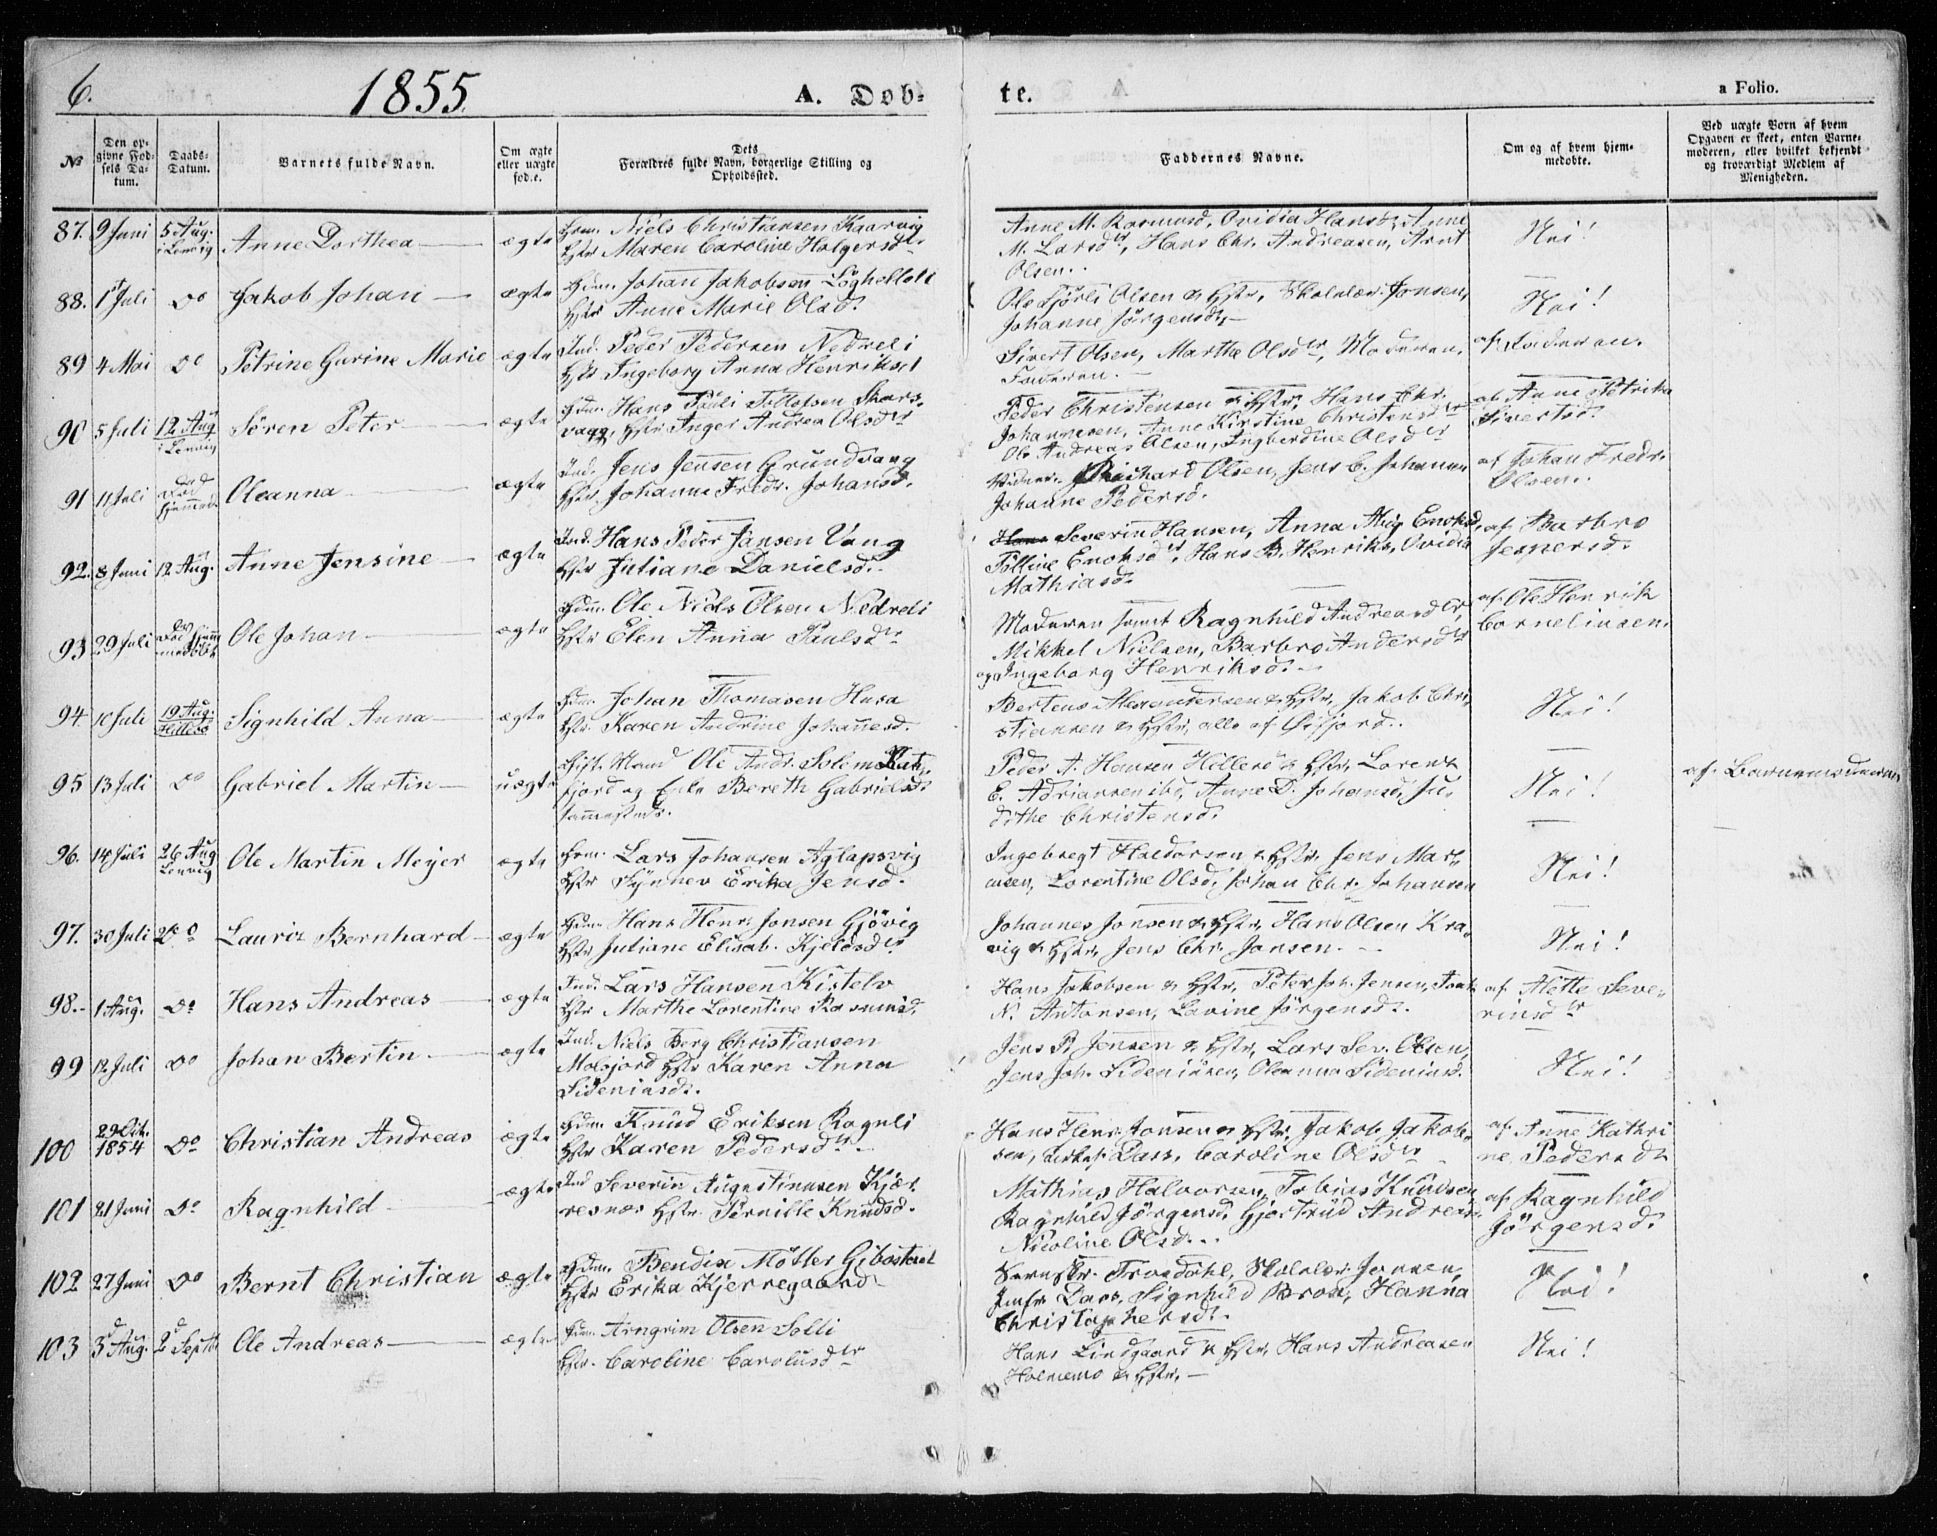 6. 1855. A. Døb-
te. a Folio.
No
Den op-
givne Fød-
sels Da-
tum.
Daabs-
Datum.
Barnets fulde Navn.
Om ægte
eller uægte
føde.
Dets
Forældres fulde Navn, borgerlige Stilling og
Opholdssted.
Faddernes Navne.
Om og af hvem hjem-
medøbte.
Ved uægte Børn af hvem
Opgaven er skeet, enten Barne-
moderen, eller hvilket bekjendt
og troværdigt Medlem af
Menigheden.
87. 9 Juni 5 Aug. i Lenvig Anne Dorthea ægte
Niels Christiansen Kaarvig
Hstr Maren Caroline Holgersdtr
Anne M. Rasmusd, Ovidia Hansd, Anne
M. Larsdtr, Hans Chr. Andreasen, Arnt
Olsen.
Nei!
88. 1 Juli Do Jakob Johan ægte
Johan Jakobsen
Hstr Anne Marie Olsd.
Ole Olsen & Hstr, Skolelær. Jonsen,
Johanne Jørgensd.
Nei!
89 4 Mai Do Petrine Gurine Marie ægte
Ind. Peder Pedersen Nedreli
Hstr Ingeborg Anna Henriksd
Sivert Olsen, Marthe Olsdtr, Moderen,
Faderen.
af Faderen.
90 5 Juli 12 Aug i Lenvig Søren Peter ægte
Hans Pauli Tollofsen Skars-
vaag, Hstr Inger Andrea Olsdtr
Peder Christensen & Hstr, Hans Chr.
Johannesen, Anne Kirstine Christensdtr
Ole Andreas Olsen, Ingberdine Olsdtr
af Anne Petrika
Sivertsd.
91 11 Juli Oleanna ægte
Ind. Jens Jensen Grundvang
Hstr Johanna Fredr. Johansd.
Richard Olsen, Jens C. Johannes
Johanne Pedersd.
af Johan Fredr.
Olsen.
92. 8 Juni 12 Aug. Anne Jensine ægte
Ind. Hans Peder Jansen Vang
Hstr Juliane Danielsd.
Hans Severin Hansen, Anna Mrg Enoksd,
Tolline Enoksdtr, Hans B. Henriks, Ovidia
Mathiasd.
af Barbro
Jespersd.
93 29 Juli Ole Johan ægte
Ole Niels Olsen Nedreli
Hstr Elen Anna Paulsdtr
Moderen samt Ragnhild Andreasdtr
Mikkel Nielsen, Barbro Andersdtr
og Ingeborg Henriksd.
af Ole Henrik
Cornelius­sen.
94. 10 Juli 19 Aug. Hillesø Signhild Anna ægte
Johan Thomasen Husa
Hstr. Karen Andrine Johannesd.
Bertens & Hstr, Jakob Chri-
stiansen & Hstr, alle af Øifjord.
Nei!
95 13 Juli Do Gabriel Martin uægte
Gift Mand Ole Andr. Solem
fjord og Enke Bereth Gabrielsd
sammesteds.
Peder A. Hansen Hillesø & Hstr, Lorens
E. Adriansen ibd, Anne D. Johansd, Ju-
dithe Christensd.
Nei!
af Barnemoderen
96. 14 Juli 26 Aug Lenvig Ole Martin Meyer ægte
Lars Johansen Aglapsvig
Hstr Synnev Erika Jensd.
Ingebregt Haldorsen & Hstr, Jens Mar-
Lorentine Olsd, Johan Chr. Johansen
Nei!
97. 30 Juli Do Lauriz Bernhard ægte
Hans Henr. Jonsen Gjøvig
Hstr Juliane Elisab. Kjeldsdtr
Johannes Jonsen & Hstr, Hans Olsen Kra-
vig & Hstr, Jens Chr. Jansen.
Nei!
98. 1 Aug. Do Hans Andreas ægte
Ind. Lars Hansen Kistelv
Hstr Marthe Lorentine Rasmusd.
Hans Jakobsen & Hstr, Peter Joh. Jensen,
N. Antonsen, Lavine Jørgensd.
af Mette Seve-
rinsdtr
99 12 Juli Do Johan Bertin ægte
Ind. Niels Berg Christiansen
Molsjord Hstr Karen Anna
Sideniusd.
Jens P. Jensen & Hstr, Lars Sev. Olsen,
Jens Joh. Sideniusen, Oleanna Sideniusd.
Nei!
100 29 Okt. 1854 Do Christian Andreas ægte
Knud Eriksen Rognli
Hstr Karen Pedersdtr
Hans Henr. Jonsen & Hstr, Jakob Jakob-
sen, Dass, Caroline Olsdtr
af Anne Kathri
ne Pedersdtr
101 21 Juni Do Ragnhild ægte
Ind Severin Augustinusen Kjær-
resnes Hstr. Pernille Knudsd.
Mathias Halvorsen, Tobias Knudsen,
Ragnhild Jørgensd, Gjertrud Andreas
Nicoline Olsd.
af Ragnhild
Jørgensd.
102 27 Juni Do Bernt Christian ægte
Bendix Møller Gibostad
Hstr Erika Kjerregaard
Trosdahl, Skolelær. Jonsen,
Jomfr. Dass, Signhild Brox, Hanna
Christophersd.
Nei!
103 3d Aug. 2d Septb. Ole Andreas ægte
Arngrim Olsen Solli
Hstr. Caroline Carolusdtr
Hans Lindgaard & Hstr, Hans Andreasen
Holmemo & Hstr,
Nei!